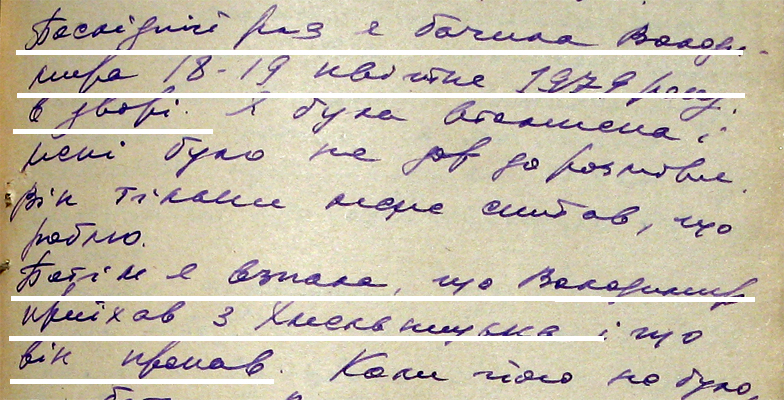 Послідній раз я бачила Володи-
мира 18-19 квітня 1979 року
в дворі. Я була втомлена і
мені було не до розмови.
Він тільки мене спитав, що
роблю.
Потім я взнала, що Володимир
приїхав з Хмельницька і що
він пропав. Коли його не було,